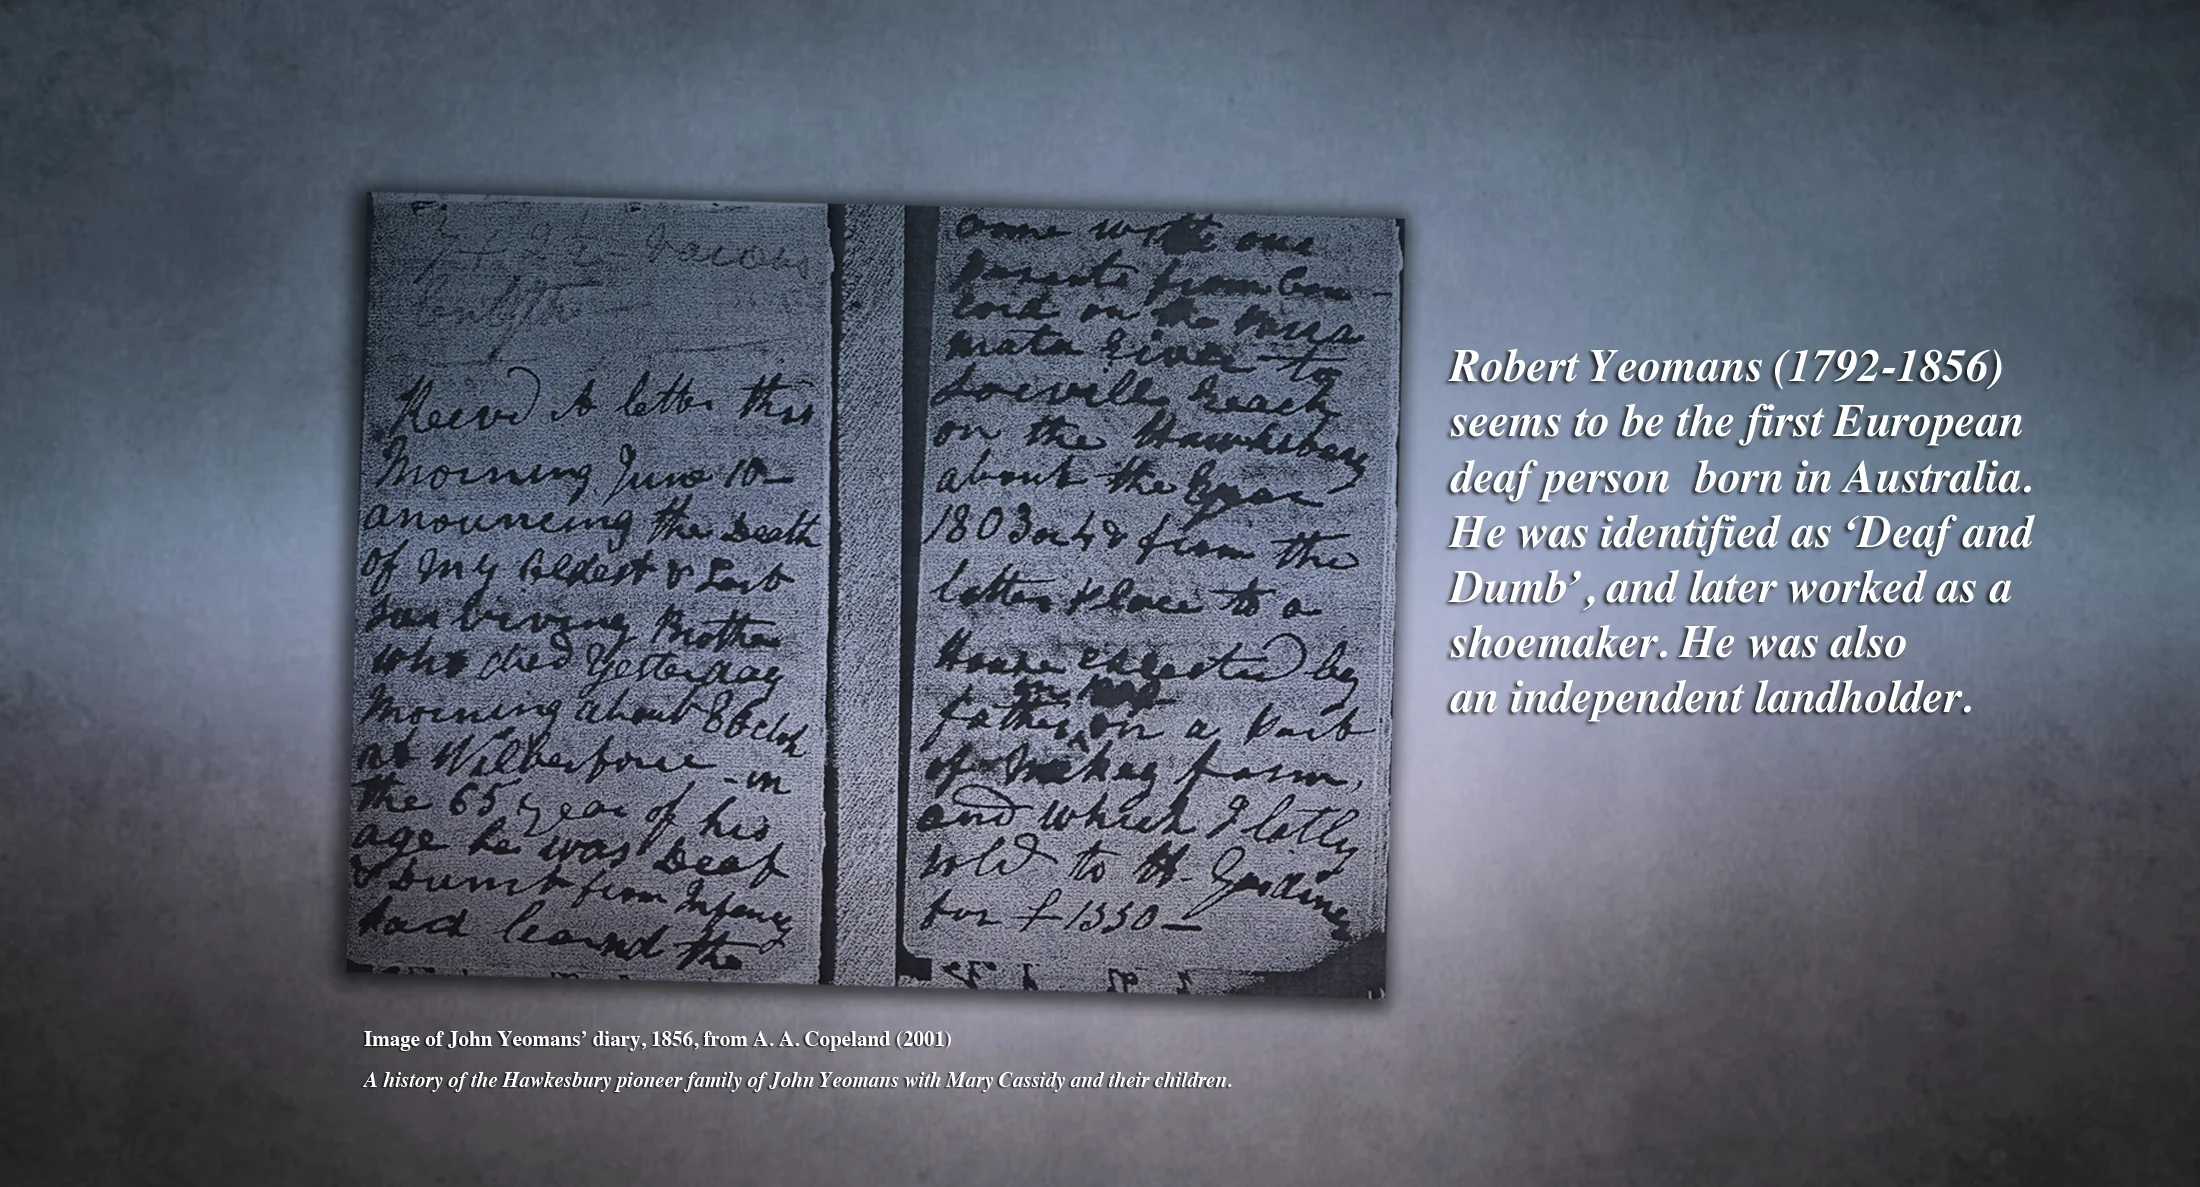 Recevd A letter this
Morning June 10
anouncing the Death
of my Eldest & Last
Surviving Brother
who died Yesterday
Morning about 8 Oclok
at Wilberforce - in
the 65 year of his
age he was Deaf
& Dumb from Infancy
had learnd the
come with our
parents from
on the
River to
Reach
on the Hawkesbury
about the Year
1803 or 4 & from the
latter place to a
House erected by
father on a part
of farm,
and which I latly
sold to H.
for £1350 —
Robert Yeomans (1792-1856)
seems to be the first European
deaf person born in Australia.
He was identified as ‘Deaf and
Dumb’, and later worked as a
shoemaker. He was also
an independent landholder.
Image of John Yeomans’ diary, 1856, from A. A. Copeland (2001)
A history of the Hawkesbury pioneer family of John Yeomans with Mary Cassidy and their children.